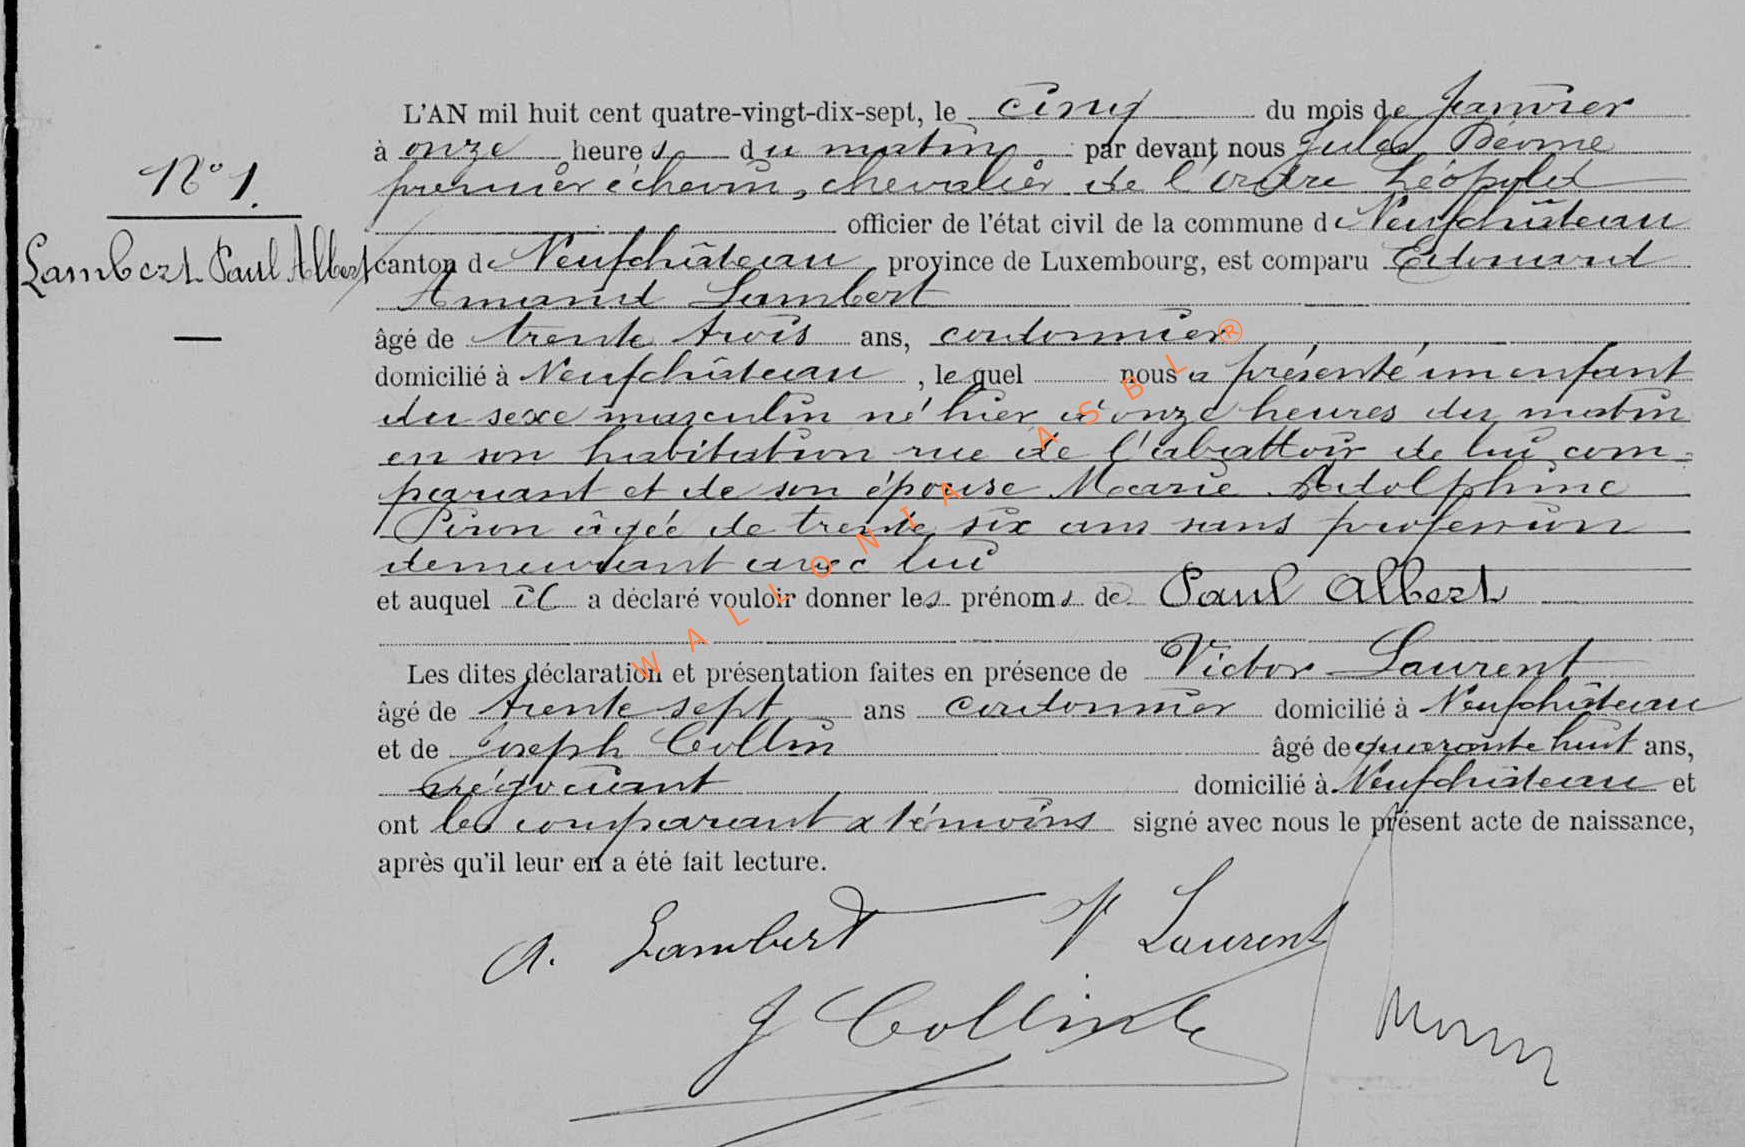 L'AN mil huit cent quatre-vingt-dix-sept, le cinq du mois de Janvier
à onze heures du matin par devant nous Jules
premier échevin, chevalier de l'ordre Léopold
officier de l'état civil de la commune de Neufchâteau
N° 1.
Lambert Paul Albert
canton de Neufchâteau province de Luxembourg, est comparu Edouard
Amand Lambert
âgé de trente trois ans, cordonnier
domicilié à Neufchâteau, lequel nous a présenté un enfant
du sexe masculin né hier à onze heures du matin
en son habitation rue de l'abattoir de lui com-
parant et de son épouse Marie Adolphine
Piron âgée de trente six ans sans profession
demeurant avec lui
et auquel il a déclaré vouloir donner les prénoms de Paul Albert
Les dites déclaration et présentation faites en présence de Victor Laurent
âgé de trente sept ans cordonnier domicilié à Neufchâteau
et de Joseph Collin âgé de quarante huit ans,
négociant domicilié à Neufchâteau et
ont les comparant & témoins signé avec nous le présent acte de naissance,
après qu'il leur en a été fait lecture.
A. Lambert V Laurent
J Collin
WALLONIA ASBL ®